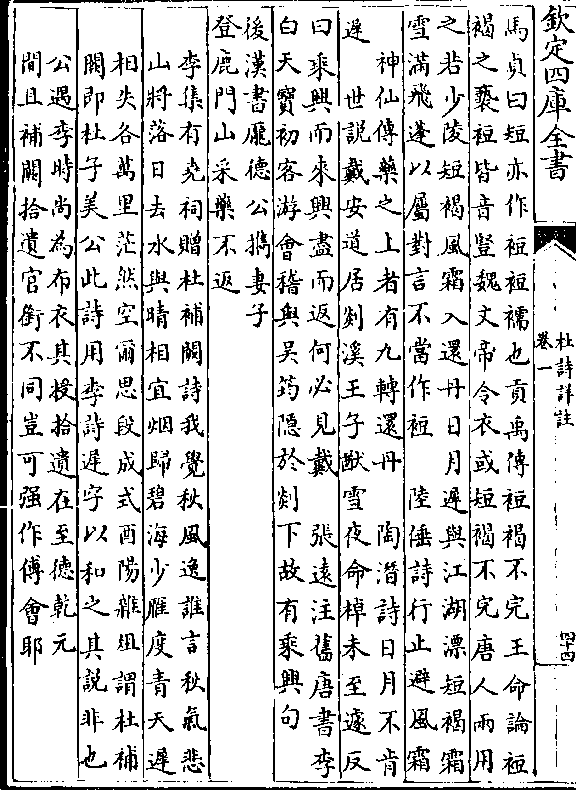 欽定四庫全書
杜詩詳註
卷一
四十四
馬貞曰短亦作裋裋襦也貢禹傳裋褐不完王命論裋
褐之褻裋皆音豎魏文帝令衣或短褐不完唐人兩用
之若少陵短褐風霜入還丹日月遲與江湖漂短褐霜
雪滿飛蓬以屬對言不當作裋　陸倕詩行止避風霜
神仙傳藥之上者有九轉還丹　陶潛詩日月不肯
遲　世説戴安道居剡溪王子猷雪夜命棹未至遽反
曰乘興而來興盡而返何必見戴　張遠注舊唐書李
白天寶初客游會稽與吳筠隱於剡下故有乘興句
後漢書龐德公攜妻子
登鹿門山采藥不返
李集有堯祠贈杜補闕詩我覺秋風逸誰言秋氣悲
山將落日去水與晴相宜烟歸碧海少雁度青天遲
相失各萬里茫然空爾思段成式酉陽雜俎謂杜補
闕即杜子美公此詩用李詩遲字以和之其説非也
公遇李時尚為布衣其授拾遺在至德乾元
間且補闕拾遺官銜不同豈可强作傅會耶